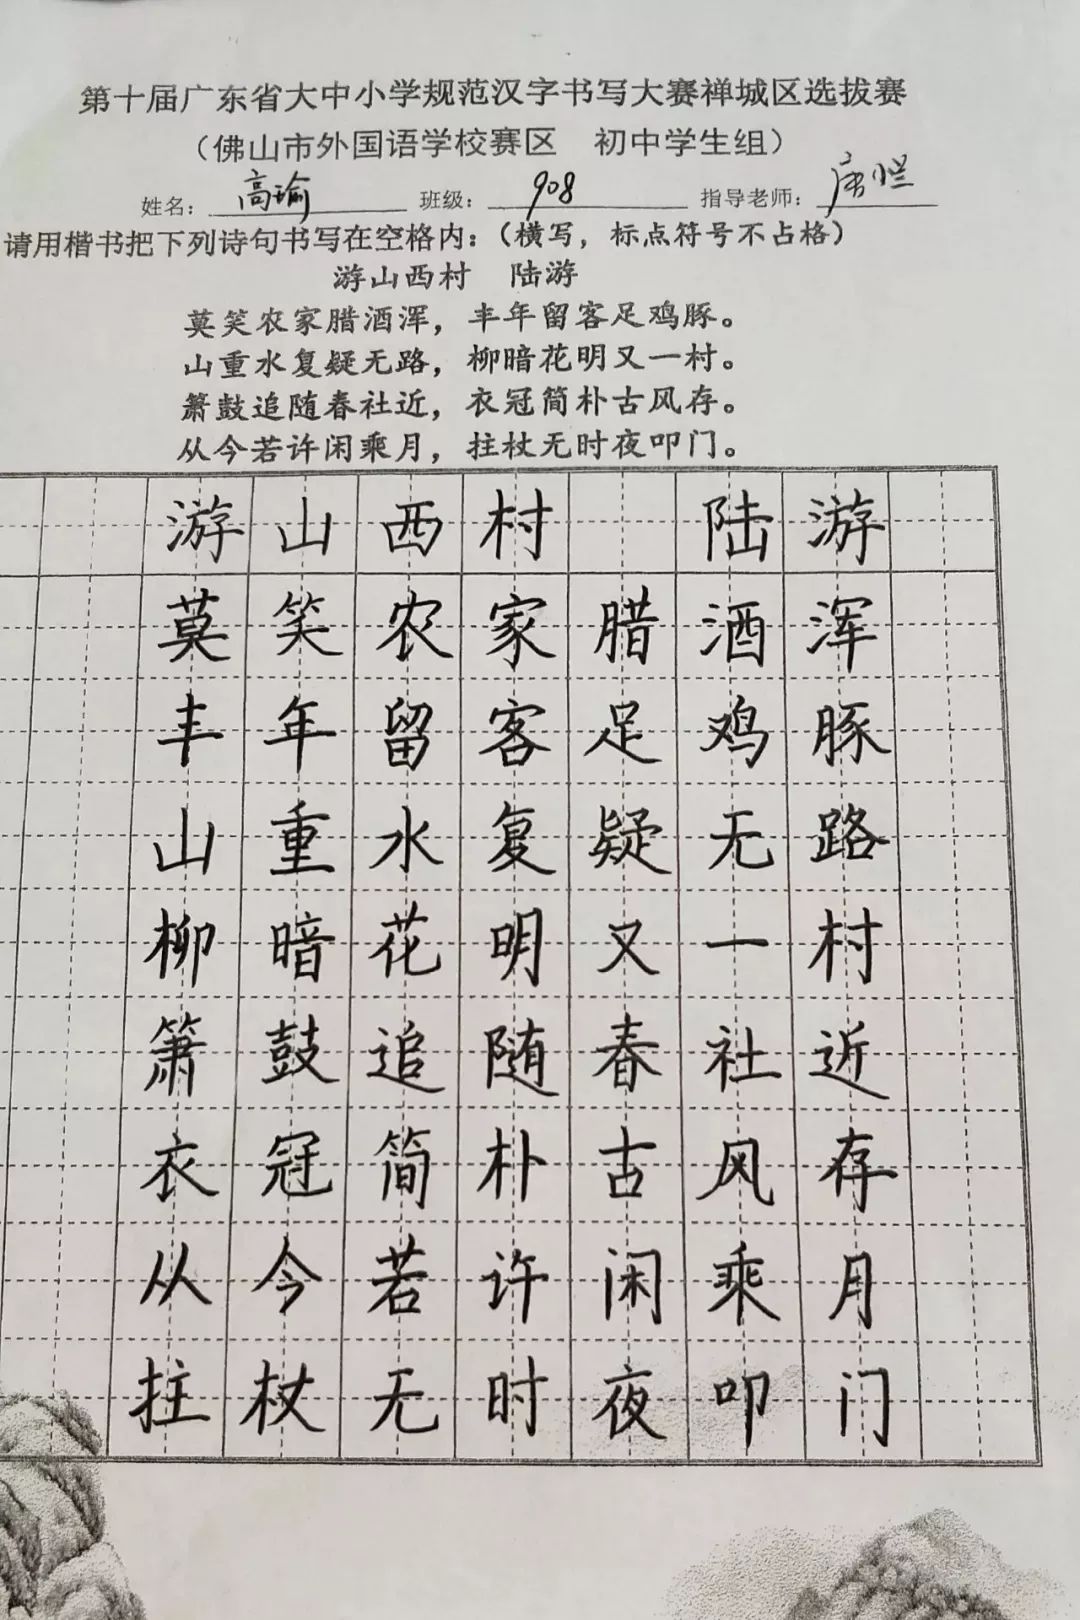 第十届广东省大中小学规范汉字书写大赛禅城区选拔赛
（佛山市外国语学校赛区 初中学生组）
姓名：高瑜 班级：908 指导老师：唐烂
请用楷书把下列诗句书写在空格内：（横写，标点符号不占格）
游山西村 陆游
莫笑农家腊酒浑，丰年留客足鸡豚。
山重水复疑无路，柳暗花明又一村。
箫鼓追随春社近，衣冠简朴古风存。
从今若许闲乘月，拄杖无时夜叩门。
游山西村 陆游
莫笑农家腊酒浑
丰年留客足鸡豚
山重水复疑无路
柳暗花明又一村
箫鼓追随春社近
衣冠简朴古风存
从今若许闲乘月
拄杖无时夜叩门